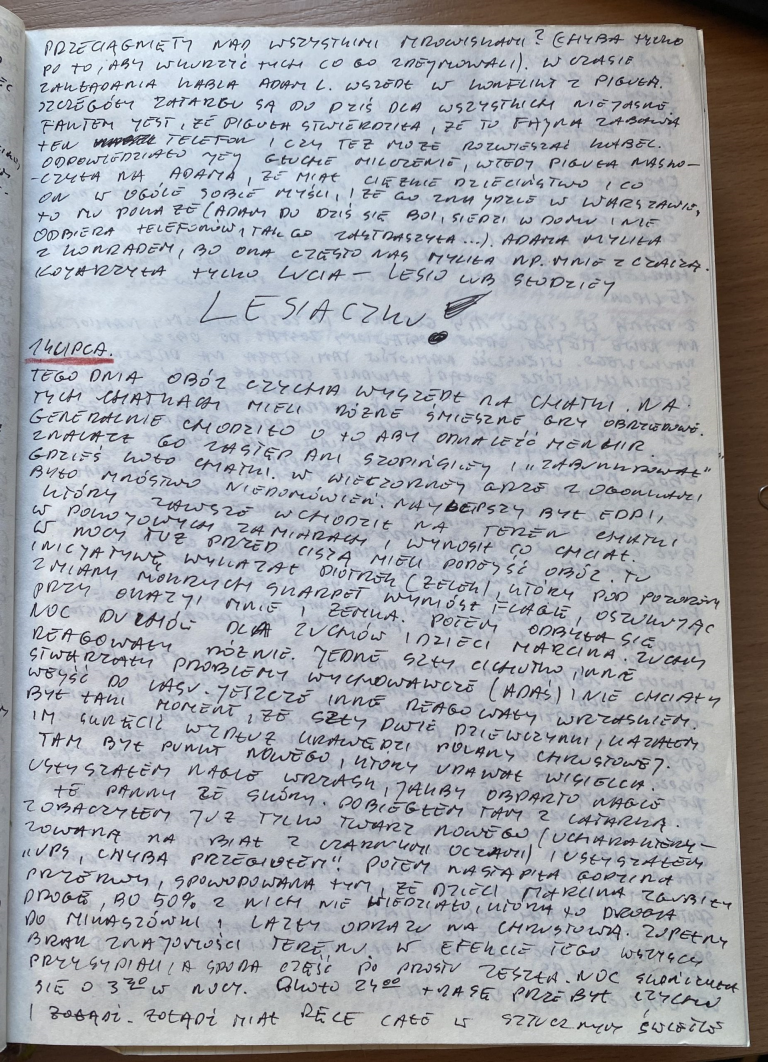 PRZECIĄGNIĘTY NAD WSZYSTKIMI MROWISKAMI? (CHYBA TYLKO
PO TO, ABY WKURZYĆ TYCH CO GO ZDEJMOWALI). W CZASIE
ZAKŁADANIA KABLA ADAM L. WSZEDŁ W KONFLIKT Z PIGUŁĄ.
SZCZEGÓŁY ZATARGU SĄ DO DZIŚ DLA WSZYSTKICH NIEJASNE
FAKTEM JEST, ŻE PIGUŁA STWIERDZIŁA, ŻE TO FAJNA ZABAWA
TEN TELEFON I CZY TEŻ MOŻE ROZWIESZAĆ KABEL.
ODPOWIEDZIAŁO JEJ GŁUCHE MILCZENIE, WTEDY PIGUŁA NASKO-
-CZYŁA NA ADAMA, ŻE MIAŁ CIĘŻKIE DZIECIŃSTWO I CO
ON W OGÓLE SOBIE MYŚLI, I ŻE GO ZNAJDZIE W WARSZAWIE,
TO MU POKAŻE (ADAM DO DZIŚ SIĘ BOI, SIEDZI W DOMU I NIE
ODBIERA TELEFONÓW, TAK GO ZASTRASZYŁA...). ADAMA MYLIŁA
Z KONRADEM, BO ONA CZĘSTO NAS MYLIŁA NP. MNIE Z CZACZĄ.
KOJARZYŁA TYLKO LUCIA – LESIO LUB SŁODZIEJ
LESIACZKU!
14 LIPCA.
TEGO DNIA OBÓZ CZYCHA WYSZEDŁ NA CHATKI. NA
TYCH CHATKACH MIELI RÓŻNE ŚMIESZNE GRY OBRZĘDOWE.
GENERALNIE CHODZIŁO O TO ABY ODNALEŹĆ MENHIR.
ZNALAZŁ GO ZASTĘP ANI SZOPIŃSKIEJ I „ZABUNKROWAŁ"
GDZIEŚ KOŁO CHATKI. W WIECZORNEJ GRZE Z OGONKAMI
BYŁO MNÓSTWO NIEDOMÓWIEŃ. NAJLEPSZY BYŁ EDDI,
KTÓRY ZAWSZE WCHODZIŁ NA TEREN CHATKI
W POKOJOWYCH ZAMIARACH I WYNOSIŁ CO CHCIAŁ.
W NOCY TUŻ PRZED CISZĄ MIELI PODEJŚĆ OBÓZ. TU
INICJATYWĘ WYKAZAŁ PIOTREK (ZELEK), KTÓRY POD POZOREM
ZMIANY MOKRYCH SKARPET WYNIÓSŁ FLAGĘ, OSZUKUJĄC
PRZY OKAZJI MNIE I ZEMKA. POTEM ODBYŁA SIĘ
NOC DUCHÓW DLA ZUCHÓW I DZIECI MARCINA. ZUCHY
REAGOWAŁY RÓŻNIE. JEDNE SZŁY CICHUTKO, INNE
STWARZAŁY PROBLEMY WYCHOWAWCZE (ADAŚ) I NIE CHCIAŁY
WEJŚĆ DO LASU. JESZCZE INNE REAGOWAŁY WRZASKIEM.
BYŁ TAKI MOMENT, ŻE SZŁY DWIE DZIEWCZYNKI, KAZAŁEM
IM SKRĘCIĆ WZDŁUŻ KRAWĘDZI POLANY CHRUSTOWEJ.
TAM BYŁ PUNKT NOWEGO, KTÓRY UDAWAŁ WISIELCA.
USŁYSZAŁEM NAGLE WRZASK, JAKBY OBDARTO NAGLE
TE PANNY ZE SKÓRY. DOBIEGŁEM TAM Z LATARKĄ.
ZOBACZYŁEM JUŻ TYLKO TWARZ NOWEGO (UCHARAKTERY-
ZOWANĄ NA BIAŁ Z CZARNYMI OCZAMI) I USŁYSZAŁEM
„UPS, CHYBA PRZEGIĄŁEM". POTEM NASTĄPIŁA GODZINA
PRZERWY, SPOWODOWANA TYM, ŻE DZIECI MARCINA ZGUBIŁY
DROGĘ, BO 50% Z NICH NIE WIEDZIAŁO, KTÓRA TO DROGA
DO MIKASZÓWKI I LAZŁY ODRAZU NA CHRUSTOWĄ. ZUPEŁNY
BRAK ZNAJOMOŚCI TERENU. W EFEKCIE TEGO WSZYSCY
PRZYSYPIALI, A SPORA CZĘŚĆ PO PROSTU ZESZŁA. NOC SKOŃCZYŁA
SIĘ O 3³⁰ W NOCY. OKOŁO 24⁰⁰ TRASĘ PRZEBYŁ CZYCHU
I ŻOŁĄDŹ. ŻOŁĄDŹ MIAŁ RĘCE CAŁE W SZTUCZNYM ŚWIETLE